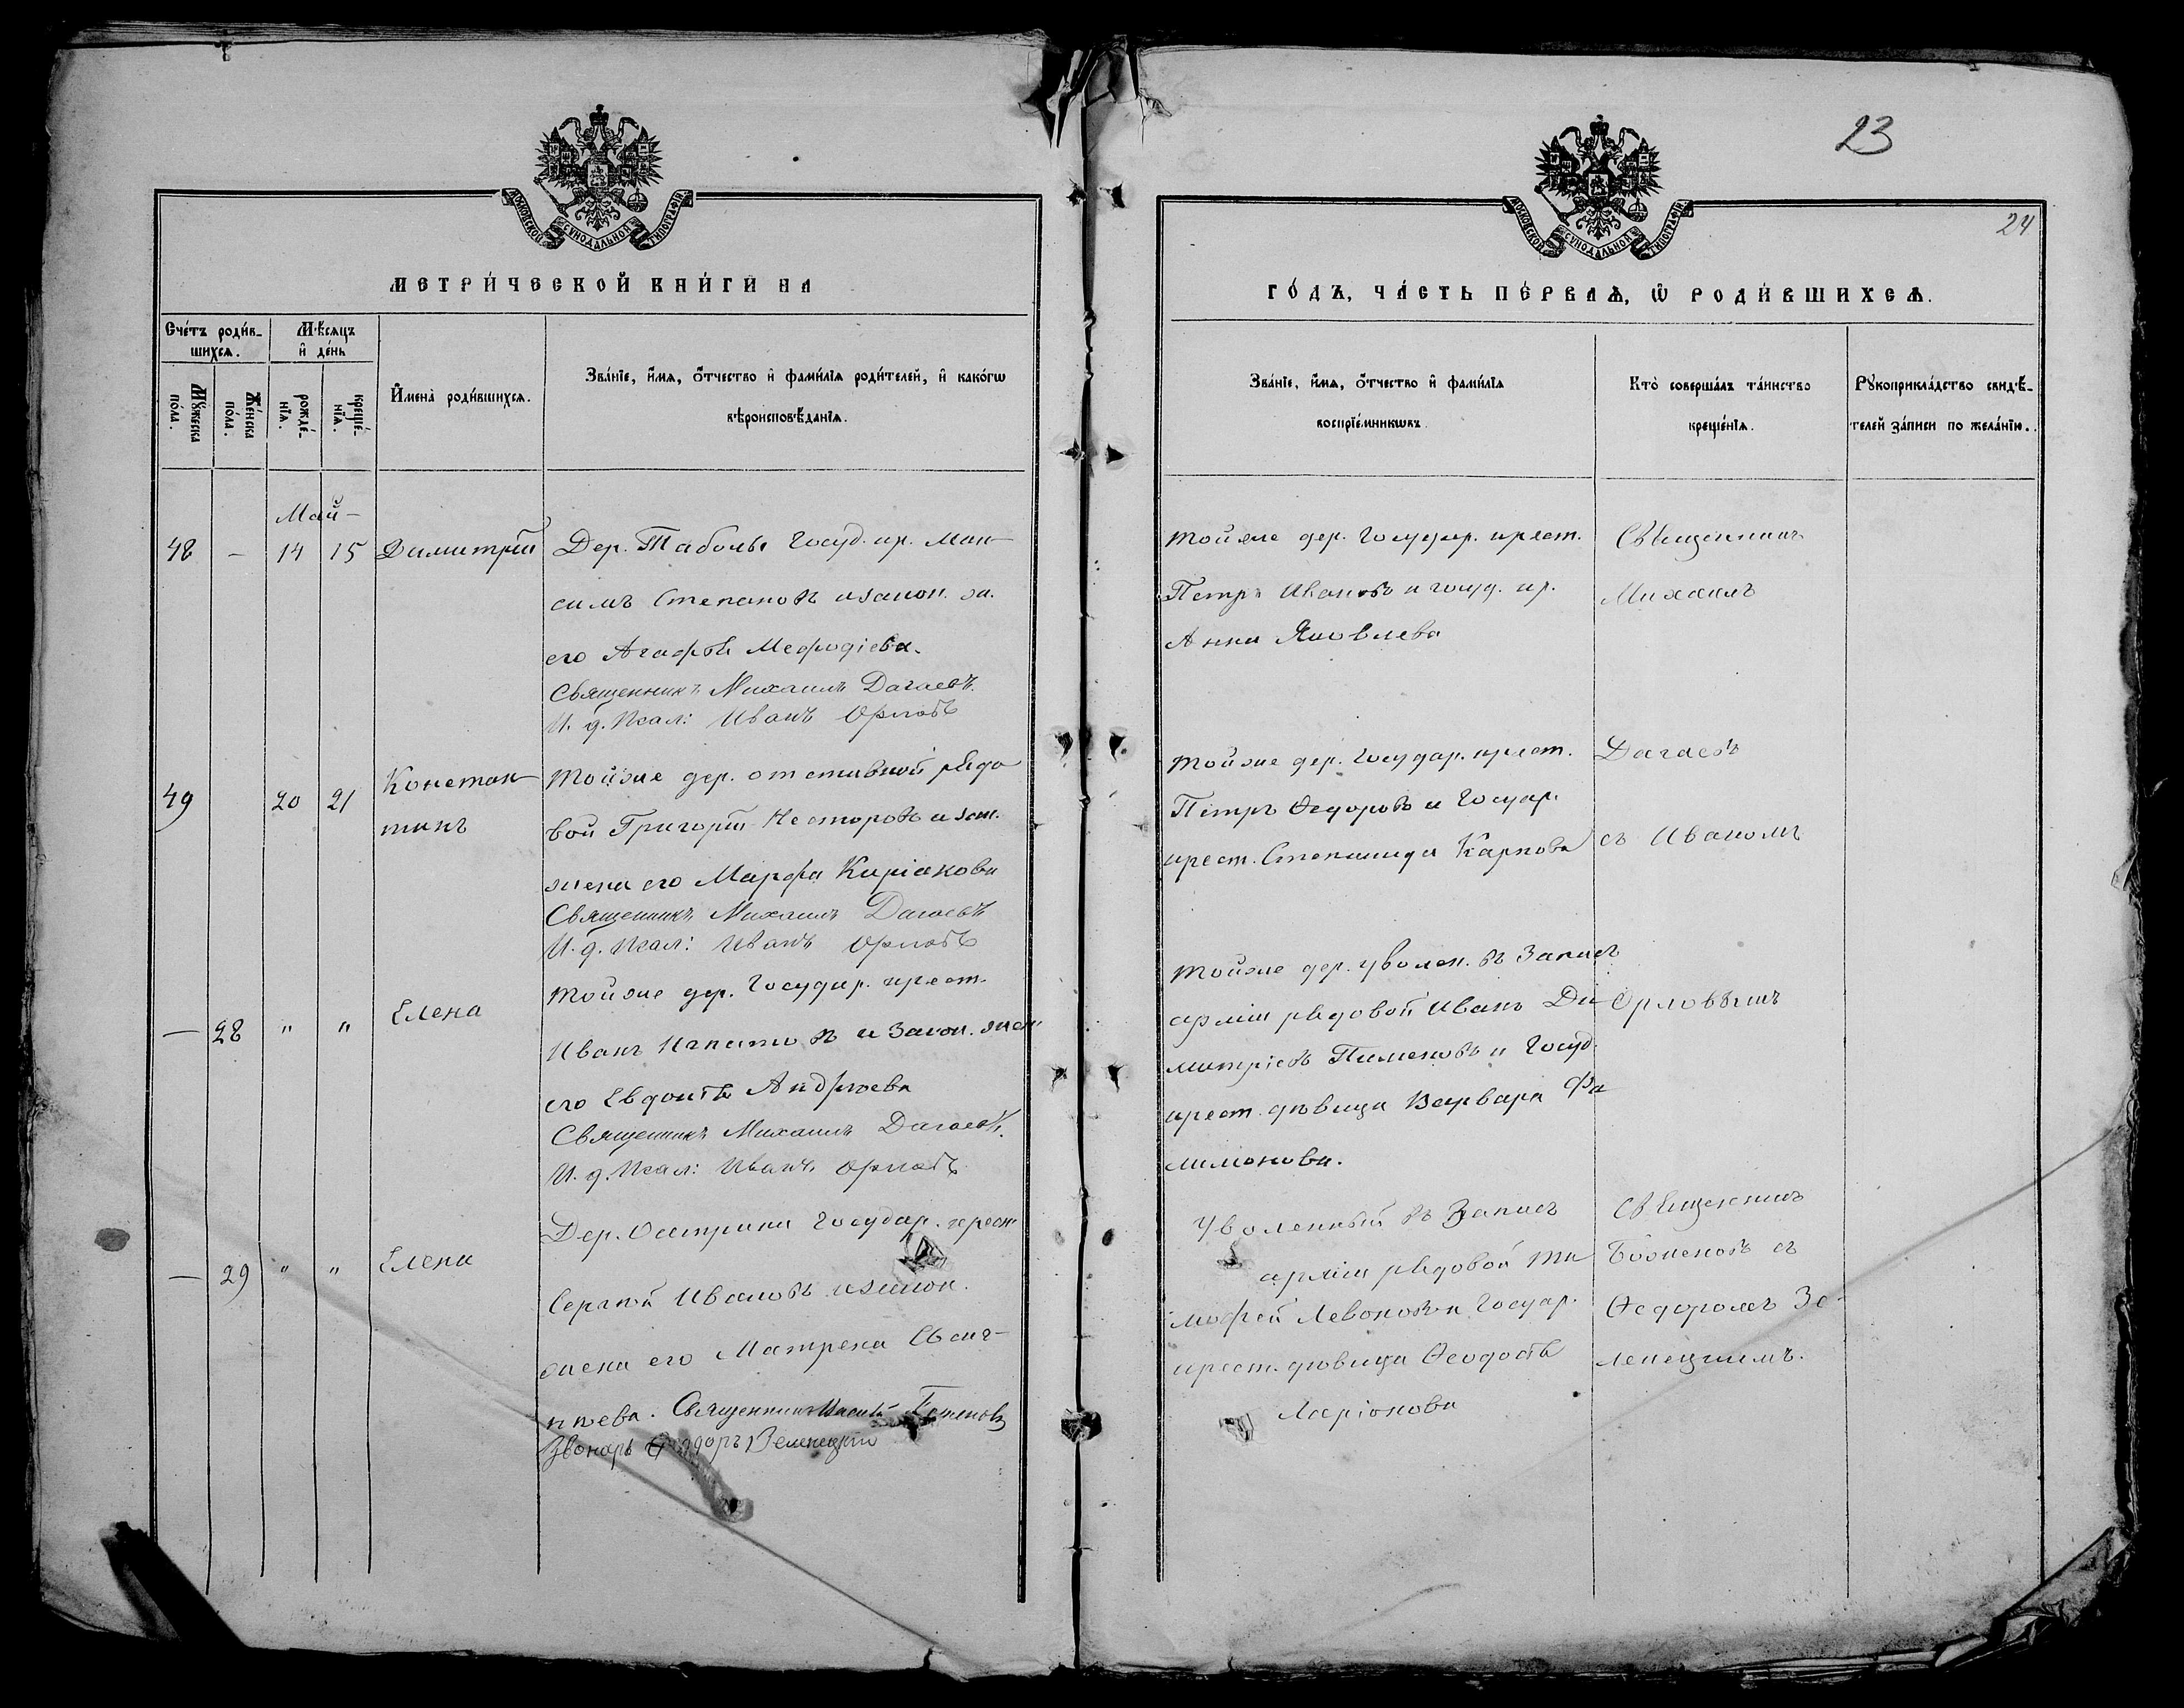 23
24
МОСКОВСКОЙ СѴНОДАЛЬНОЙ ТИПОГРАФІИ
МОСКОВСКОЙ СѴНОДАЛЬНОЙ ТИПОГРАФІИ
МЕТРИ́ЧЕСКОЙ КНИ́ГИ НА
ГО́ДЪ, ЧА́СТЬ ПЕ́РВАѦ, Ѡ҆ РОДИ́ВШИХСѦ.
Сче́тъ роди́в-
шихсѧ.
Мꙋ́жеска
по́ла.
Же́нска
по́ла.
Мѣ́сяцъ
и҆ де́нь
рожде́-
нїѧ.
креще́-
нїѧ.
И҆мена̀ роди́вшихсѧ.
Зва́нїе, и҆́мѧ, ѻ҆́тчество и҆ фами́лїѧ роди́телей, и҆ како́гѡ
вѣроисповѣ́данїѧ.
Зва́нїе, и҆́мѧ, ѻ҆́тчество и҆ фами́лїѧ
воспрїе́мникѡвъ.
Кто̀ соверша́лъ та́инство
креще́нїѧ.
Рꙋкоприкла́дство свидѣ́-
телей за́писи по жела́нїю.
Май
48 – 14 15 Димитрій
Дер. Таболы Госуд. кр. Мак-
симъ Степановъ и закон. жи.
его Агафія Мефодіева.
Священникъ Михаилъ Дагаевъ.
И. д. Псал: Иванъ Орловъ
Тойже дер. Государ. крест.
Петръ Ивановъ и госуд. кр.
Анна Яковлева
Священникъ
Михаилъ
49 20 21 Констан-
тинъ
Тойже дер. отставной рядо
вой Григорій Несторовъ и зак.
жена его Марфа Киріакова
Священникъ Михаилъ Дагаевъ
И. д. Псал: Иванъ Орловъ
Тойже дер. Государ. крест.
Петръ Ѳедоровъ и Госуар.
крест. Степанида Карпова
Дагаевъ
съ Иваномъ
– 28 " " Елена
Тойже дер. Государ. крест.
Иванъ Игнатовъ и Закон. жен
его Евдокія Андреева
Священникъ Михаилъ Дагаевъ.
И. д. Псал: Иванъ Орловъ
Тойже дер. уволен. въ Запасъ
арміи рядовой Иванъ Ди-
митріевъ Пименовъ и Госуд.
крест. дѣвица Варвара Фи
лимонова.
Орловымъ
– 29 " " Елена
Дер. Острики Государ. крест
Сергѣй Ивановъ и закон.
жена его Матрена Евсиг-
нѣева. Священникъ Боженовъ
Звонарь Ѳеодоръ Зеленецкій
Уволенный въ Запасъ
арміи рядовой Ти
мофей Левоновъ и Госуар.
крест. дѣвица Ѳеодосія
Ларіонова
Священникъ
Боженовъ съ
Ѳедоромъ Зе-
ленецкимъ.